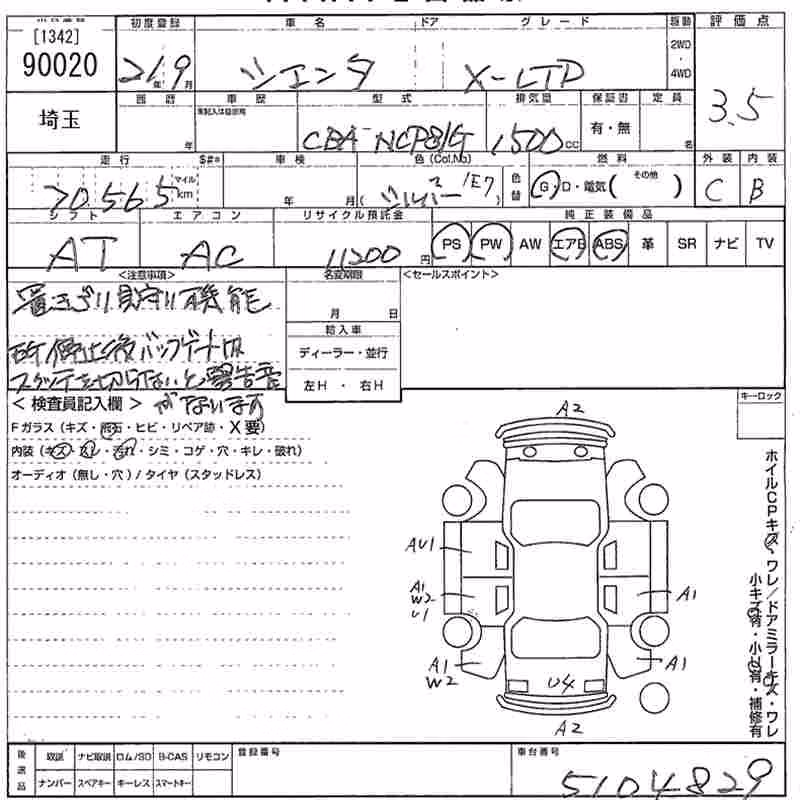 [1342]
90020
埼玉
初度登録 車名 ドア グレード 駆動 評価点
21年9月 シエンタ X-LTD 2WD・4WD 3.5
西暦 車歴 型式 排気量 保証書 定員
年 CBA-NCP81G 1500cc 有・無 名
走行 $#* 車検 色(Col.No) 燃料 外装 内装
70,565 マイル km 年 月 (シルバー 1E7) 色替 G・D・電気 (その他) C B
シフト エアコン リサイクル預託金 純正装備品
AT AC 11200円 PS PW AW エアB ABS 革 SR ナビ TV
<注意事項> 名変期限 <セールスポイント>
置きざり見守り機能 月 日
輸入車
停止後バックゲート ディーラー・並行
スイッチを切らないと警告音 左H・右H
がなります
<検査員記入欄>
キーロック
Fガラス(キズ・飛石・ヒビ・リペア跡・X要)
内装(キズ・汚れ・シミ・コゲ・穴・キレ・破れ)
オーディオ(無し・穴)/タイヤ(スタッドレス)
A2
AU1
A1
W2
U1
A1
A1
W2
A1
U4
A2
ホイルCPキズ、ワレ/ドアミラーキズ・ワレ
小キズ有・小U有・補修有
後選品 取説 ナビ取説 ロム/SD B-CAS リモコン 登録番号 車台番号
ナンバー スペアキー キーレス スマートキー 5104829